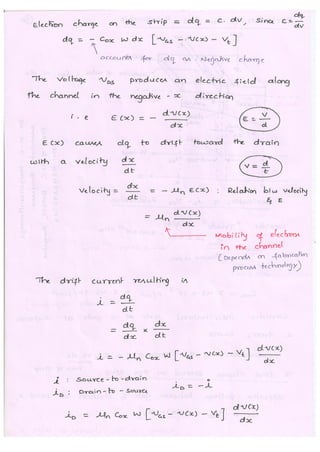 Electron charge on the strip = dq = c. dv, Since c = dq/dv
dq = - Cox W dx [VGS - V(x) - Vt]
accounts for dq as Negative charge
The voltage VDS produces an electric field along
the channel in the negative - x direction
i.e E(x) = - d.v(x)/dx (E = V/d)
E(x) causes dq to drift toward the drain
with a velocity dx/dt (V = d/t)
Velocity = dx/dt = - μn E(x) : Relation b/w velocity
& E
= μn d.v(x)/dx
Mobility of electrons
in the channel
(Depends on fabrication
process technology)
The drift current resulting is
i = dq/dt
= dq/dx × dx/dt
i = - μn Cox W [VGS - V(x) - Vt] d.v(x)/dx
i : Source-to-drain
iD : Drain-to-source iD = -i
iD = μn Cox W [VGS - V(x) - Vt] d v(x)/dx